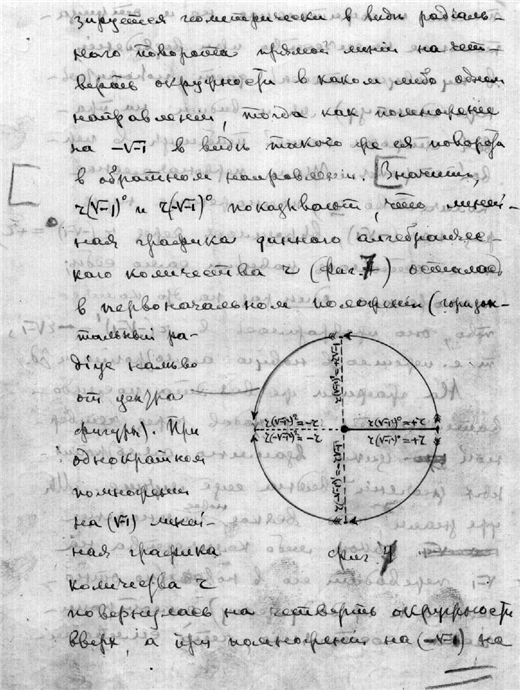 зируется геометрически в виде радіаль-
ного поворота прямой линіи на чет-
верть окружности в каком либо одном
направленіи, тогда как помноженіе
на -√-1 в виде такого же ея поворота
в обратном направленіи. [Значит,
r(√-1)⁰ и r(-√-1)⁰ показывают, что линей-
ная графика данного алгебраичес-
каго количества r (фиг. 7) осталась
в первоначальном положеніи (горизон-
тальный ра-
діус направо
от центра
фигуры). При
однократном
помноженіи
на (√-1) линей-
ная графика
количества r
повернулась на четверть окружности
вверх, а при помноженіи на (-√-1) на
r(√-1)²=-r
r(-√-1)²=-r
r(√-1)⁰=+r
r(-√-1)⁰=+r
r(√-1)¹=+r√-1
r(-√-1)¹=-r√-1
фиг 7